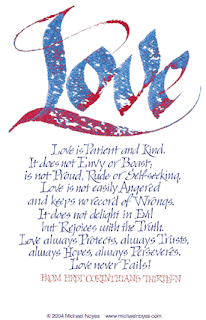 Love
Love is Patient and Kind.
It does not Envy or Boast,
is not Proud, Rude or Self-seeking.
Love is not easily Angered
and keeps no record of Wrongs.
It does not delight in Evil
but Rejoices with the Truth.
Love always Protects, always Trusts,
always Hopes, always Perseveres.
Love never Fails!
FROM FIRST CORINTHIANS THIRTEEN
© 2004 Michael Noyes www.michaelnoyes.com